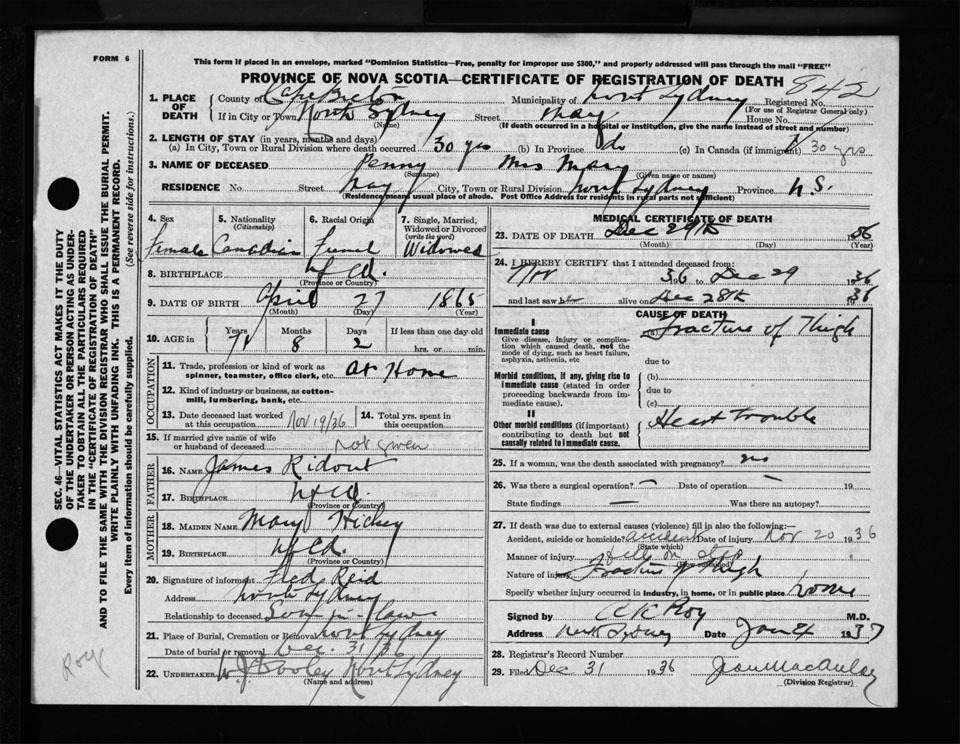 FORM 6
This form if placed in an envelope, marked "Dominion Statistics—Free, penalty for improper use $300," and properly addressed will pass through the mail "FREE"
PROVINCE OF NOVA SCOTIA—CERTIFICATE OF REGISTRATION OF DEATH 842
1. PLACE OF DEATH County of Cape Breton Municipality of North Sydney Registered No.
(For use of Registrar General only)
If in City or Town North Sydney Street May House No.
(Name) (If death occurred in a hospital or institution, give the name instead of street and number)
2. LENGTH OF STAY (in years, months and days)
(a) In City, Town or Rural Division where death occurred 30 yrs (b) In Province do (c) In Canada (if immigrant) 30 yrs
3. NAME OF DECEASED Penny Mrs Mary
(Surname) (Given name or names)
RESIDENCE No. Street May City, Town or Rural Division North Sydney Province N.S.
(Residence means usual place of abode. Post Office Address for residents in rural parts not sufficient)
4. Sex Female
5. Nationality (Citizenship) Canadian
6. Racial Origin
7. Single, Married, Widowed or Divorced (write the word) Widowed
8. BIRTHPLACE Nfld.
(Province or Country)
9. DATE OF BIRTH April 27 1865
(Month) (Day) (Year)
10. AGE in Years 71 Months 8 Days 2 If less than one day old
hrs. or min.
OCCUPATION
11. Trade, profession or kind of work as spinner, teamster, office clerk, etc. At Home
12. Kind of industry or business, as cotton-mill, lumbering, bank, etc.
13. Date deceased last worked at this occupation Nov 19/36
14. Total yrs. spent in this occupation
15. If married give name of wife or husband of deceased not given
FATHER
16. NAME James Ridout
17. BIRTHPLACE Nfld.
(Province or Country)
MOTHER
18. MAIDEN NAME Mary Hickey
19. BIRTHPLACE Nfld.
(Province or Country)
20. Signature of informant Fred Reid
Address North Sydney
Relationship to deceased Son in law
21. Place of Burial, Cremation or Removal North Sydney
Date of burial or removal Dec. 31/36
22. UNDERTAKER W. J. Dooley North Sydney
(Name and address)
MEDICAL CERTIFICATE OF DEATH
23. DATE OF DEATH Dec 29th 36
(Month) (Day) (Year)
24. I HEREBY CERTIFY that I attended deceased from:
Nov 1936 to Dec 29 1936
and last saw alive on Dec 28th 1936
CAUSE OF DEATH
I
Immediate cause (a) Fracture of Thigh
Give disease, injury or complication which caused death, not the mode of dying, such as heart failure, asphyxia, asthenia, etc
due to
Morbid conditions, if any, giving rise to immediate cause (stated in order proceeding backwards from immediate cause).
(b)
due to
(c)
II
Other morbid conditions (if important) contributing to death but not causally related to immediate cause.
Heart Trouble
25. If a woman, was the death associated with pregnancy?
26. Was there a surgical operation? — Date of operation — 19
State findings — Was there an autopsy?
27. If death was due to external causes (violence) fill in also the following:—
Accident, suicide or homicide? accident Date of injury Nov 20 1936
(State which)
Manner of injury fell on
Nature of injury Fracture of Thigh
Specify whether injury occurred in industry, in home, or in public place home
Signed by A K Roy M.D.
Address North Sydney Date Jan 4 1937
28. Registrar's Record Number
29. Filed Dec 31 1936 Jean MacAulay
(Division Registrar)
SEC. 46—VITAL STATISTICS ACT MAKES IT THE DUTY OF THE UNDERTAKER OR PERSON ACTING AS UNDERTAKER TO OBTAIN ALL THE PARTICULARS REQUIRED IN THE "CERTIFICATE OF REGISTRATION OF DEATH" AND TO FILE THE SAME WITH THE DIVISION REGISTRAR WHO SHALL ISSUE THE BURIAL PERMIT.
WRITE PLAINLY WITH UNFADING INK. THIS IS A PERMANENT RECORD.
Every item of Information should be carefully supplied. (See reverse side for instructions.)
Roy